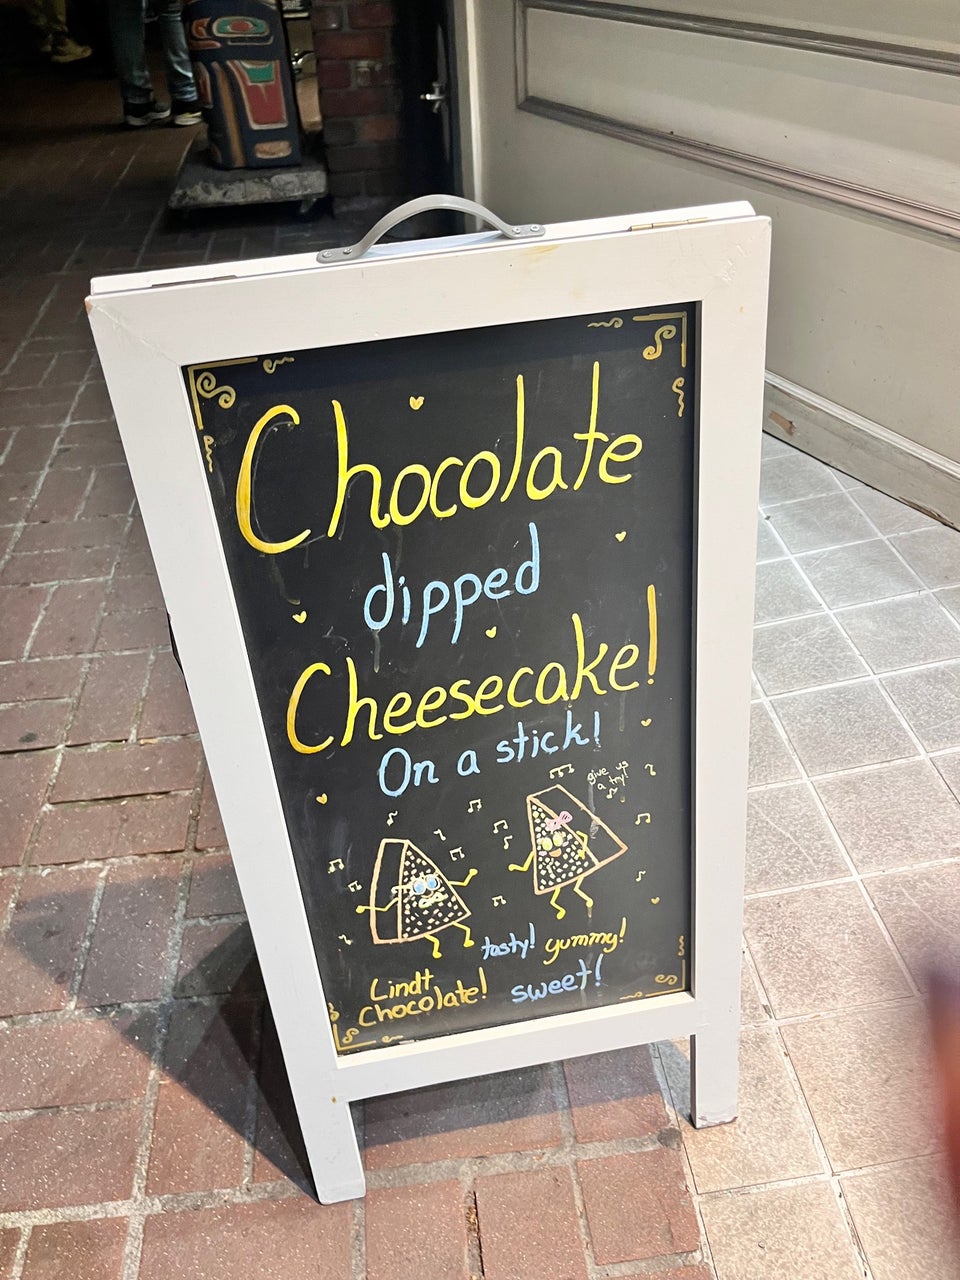 Chocolate
dipped
Cheesecake!
On a stick!
give us
a try!
tasty! yummy!
Lindt
Chocolate! sweet!